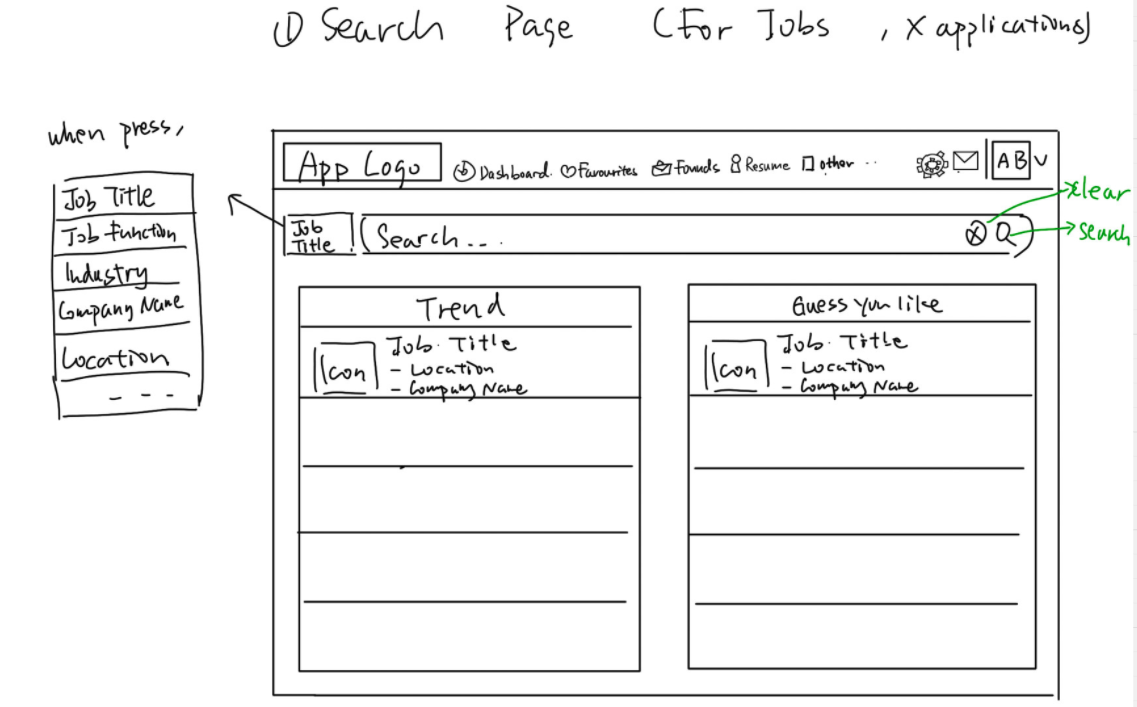 ① Search Page (For Jobs, X applications)
when press,
Job Title
Job Function
Industry
Company Name
Location
- - -
App Logo
Dashboard.
Favourites
Resume
other ..
A B
clear
Job
Title
Search...
search
Trend
Icon
Job. Title
- Location
- Company Name
Guess you like
Icon
Job. Title
- Location
- Company Name